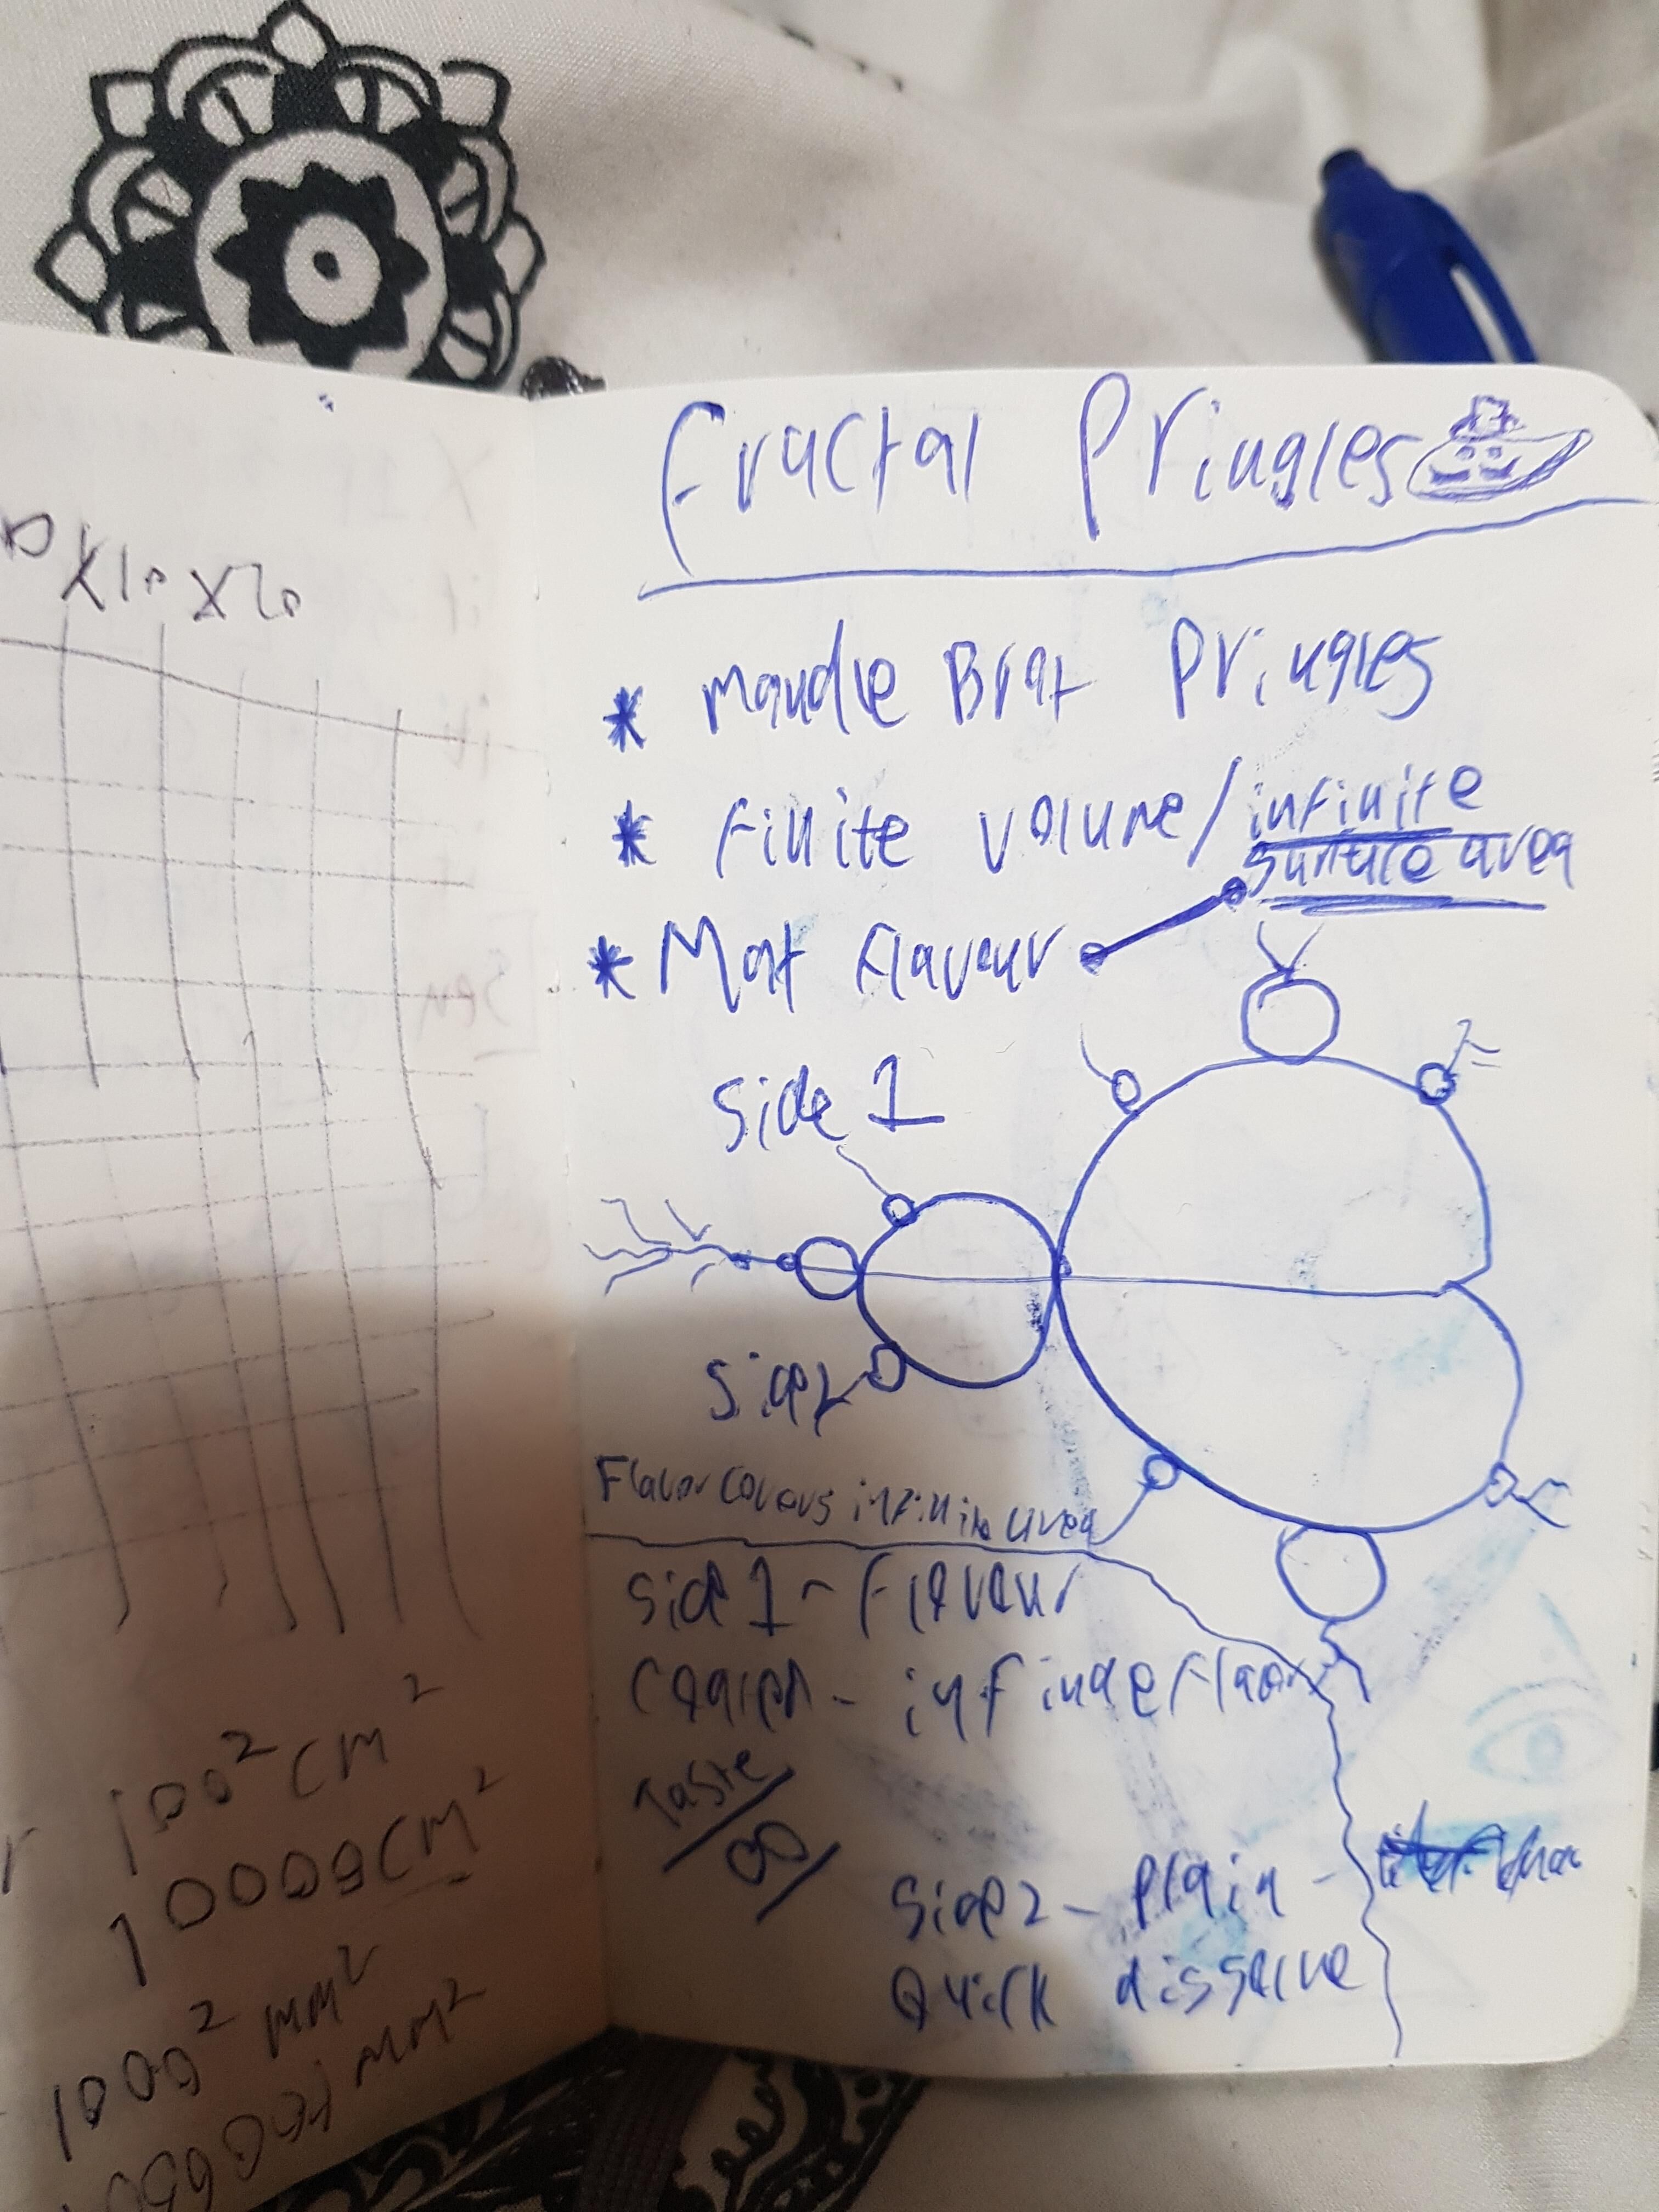 X10 X20
100² cm²
10000 cm²
1000² mm²
Fractal Pringles
* Mandle Brot Pringles
* Finite volume / infinite
surface area
* Most Flavour
Side 1
Side 2
Flavor covers infinite area
Side 1 - Flavour
infinate flavor
Taste
∞
Side 2 - Plain -
Quick dissolve